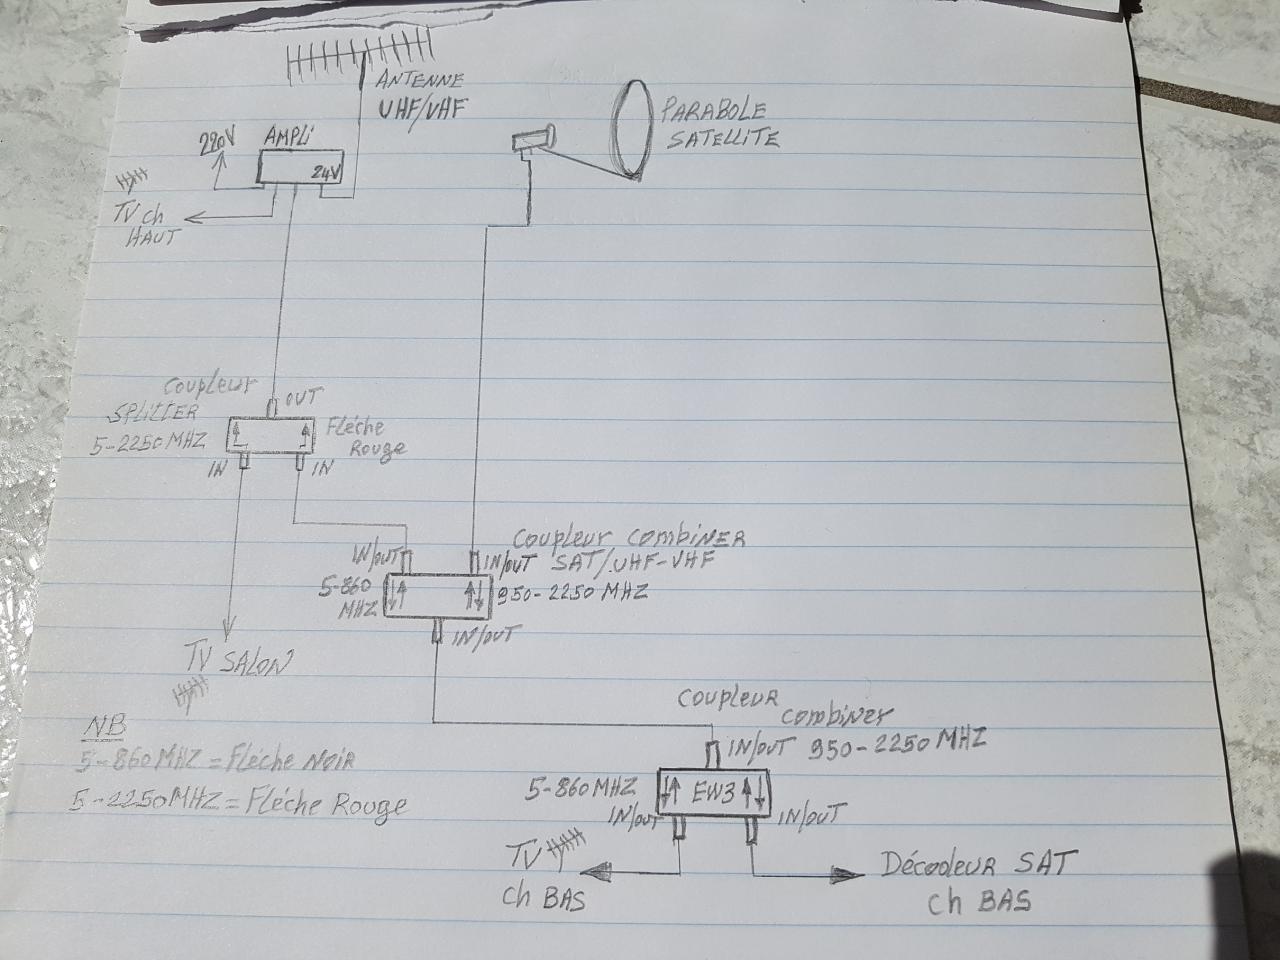 ANTENNE
UHF/VHF
PARABOLE
SATELLITE
220V
AMPLi
24V
TV ch
HAUT
Coupleur
SPLITTER
5-2250 MHZ
OUT
Fléche
Rouge
IN
IN
Coupleur combiNER
SAT/UHF-VHF
IN/OUT
IN/OUT
5-860
MHZ
950-2250 MHZ
IN/OUT
TV SALON
NB
5-860 MHZ = Fléche Noir
5-2250 MHZ = Fléche Rouge
Coupleur
combiner
IN/OUT 950-2250 MHZ
5-860 MHZ
EW3
IN/OUT
IN/OUT
TV
ch BAS
Décodeur SAT
ch BAS